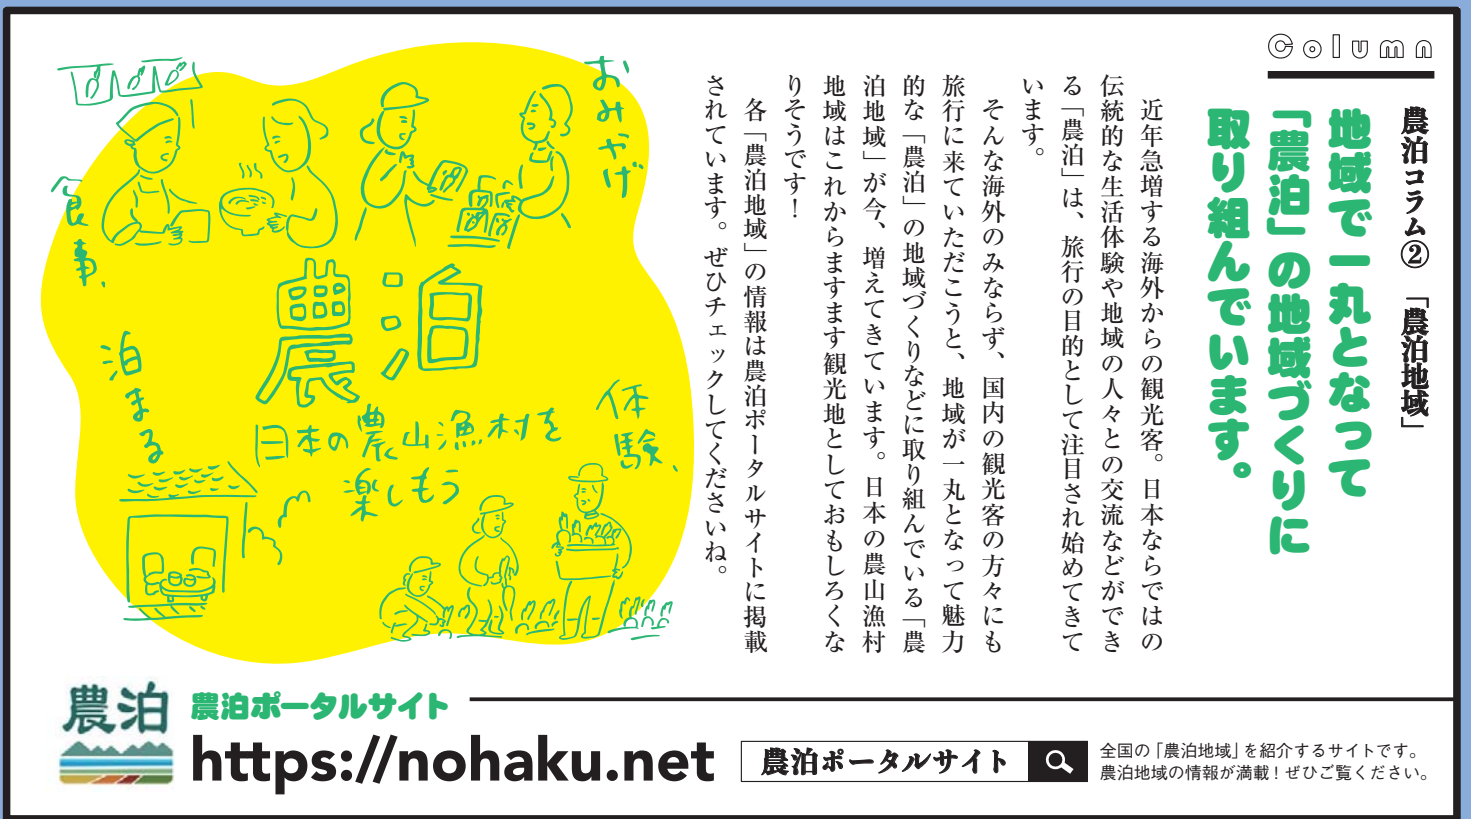 Column
農泊コラム② 「農泊地域」
地域で一丸となって
「農泊」の地域づくりに
取り組んでいます。
近年急増する海外からの観光客。日本ならではの
伝統的な生活体験や地域の人々との交流などができ
る「農泊」は、旅行の目的として注目され始めてきて
います。
そんな海外のみならず、国内の観光客の方々にも
旅行に来ていただこうと、地域が一丸となって魅力
的な「農泊」の地域づくりなどに取り組んでいる「農
泊地域」が今、増えてきています。日本の農山漁村
地域はこれからますます観光地としておもしろくな
りそうです！
各「農泊地域」の情報は農泊ポータルサイトに掲載
されています。ぜひチェックしてくださいね。
おみやげ
食事、
農泊
泊まる
体験、
日本の農山漁村を
楽しもう
農泊
農泊ポータルサイト
https://nohaku.net
農泊ポータルサイト
全国の「農泊地域」を紹介するサイトです。
農泊地域の情報が満載！ぜひご覧ください。